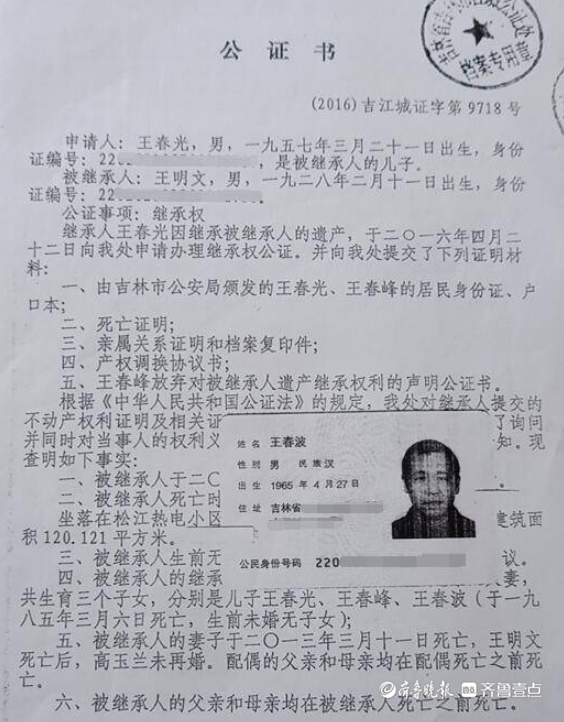 公证书
档案专用章
(2016)吉江城证字第9718号
申请人：王春光，男，一九五七年三月二十一日出生，身份
证编号：220 ，是被继承人的儿子。
被继承人：王明文，男，一九二八年二月十一日出生，身份
证编号：220 。
公证事项：继承权
继承人王春光因继承被继承人的遗产，于二〇一六年四月二
十二日向我处申请办理继承权公证。并向我处提交了下列证明材
料：
一、由吉林市公安局颁发的王春光、王春峰的居民身份证、户
口本；
二、死亡证明；
三、亲属关系证明和档案复印件；
四、产权调换协议书；
五、王春峰放弃对被继承人遗产继承权利的声明公证书。
根据《中华人民共和国公证法》的规定，我处对继承人提交的
不动产权利证明及相关证 了询问
并同时对当事人的权利义 知。现
查明如下事实：
一、被继承人于二〇 。
二、被继承人死亡时
坐落在松江热电小区 建筑面
积120.121平方米。
三、被继承人生前无 议。
四、被继承人的继承 妻，
共生育三个子女，分别是儿子王春光、王春峰、王春波（于一九
八五年三月六日死亡，生前未婚无子女）；
五、被继承人的妻子于二〇一三年三月十一日死亡，王明文
死亡后，高玉兰未再婚。配偶的父亲和母亲均在配偶死亡之前死
亡。
六、被继承人的父亲和母亲均在被继承人死亡之前死亡。
姓名 王春波
性别 男 民族 汉
出生 1965年4月27日
住址 吉林省
公民身份号码 220
齐鲁晚报 齐鲁壹点